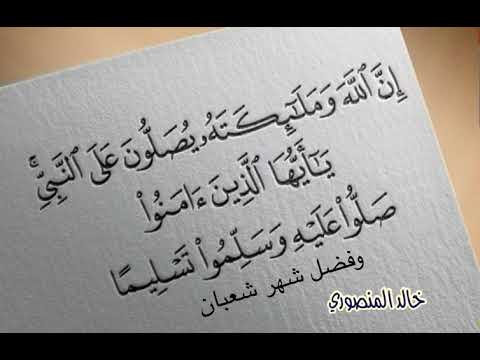 إِنَّ ٱللَّهَ وَمَلَـٰٓئِكَتَهُۥ يُصَلُّونَ عَلَى ٱلنَّبِىِّ ۚ
يَـٰٓأَيُّهَا ٱلَّذِينَ ءَامَنُوا۟
صَلُّوا۟ عَلَيْهِ وَسَلِّمُوا۟ تَسْلِيمًا
وفضل شهر شعبان
خالد المنصوري